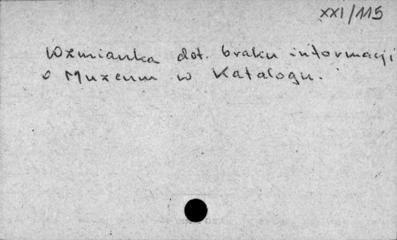 XXI/115
Wzmianka dot. braku informacji
o Muzeum w Katalogu.